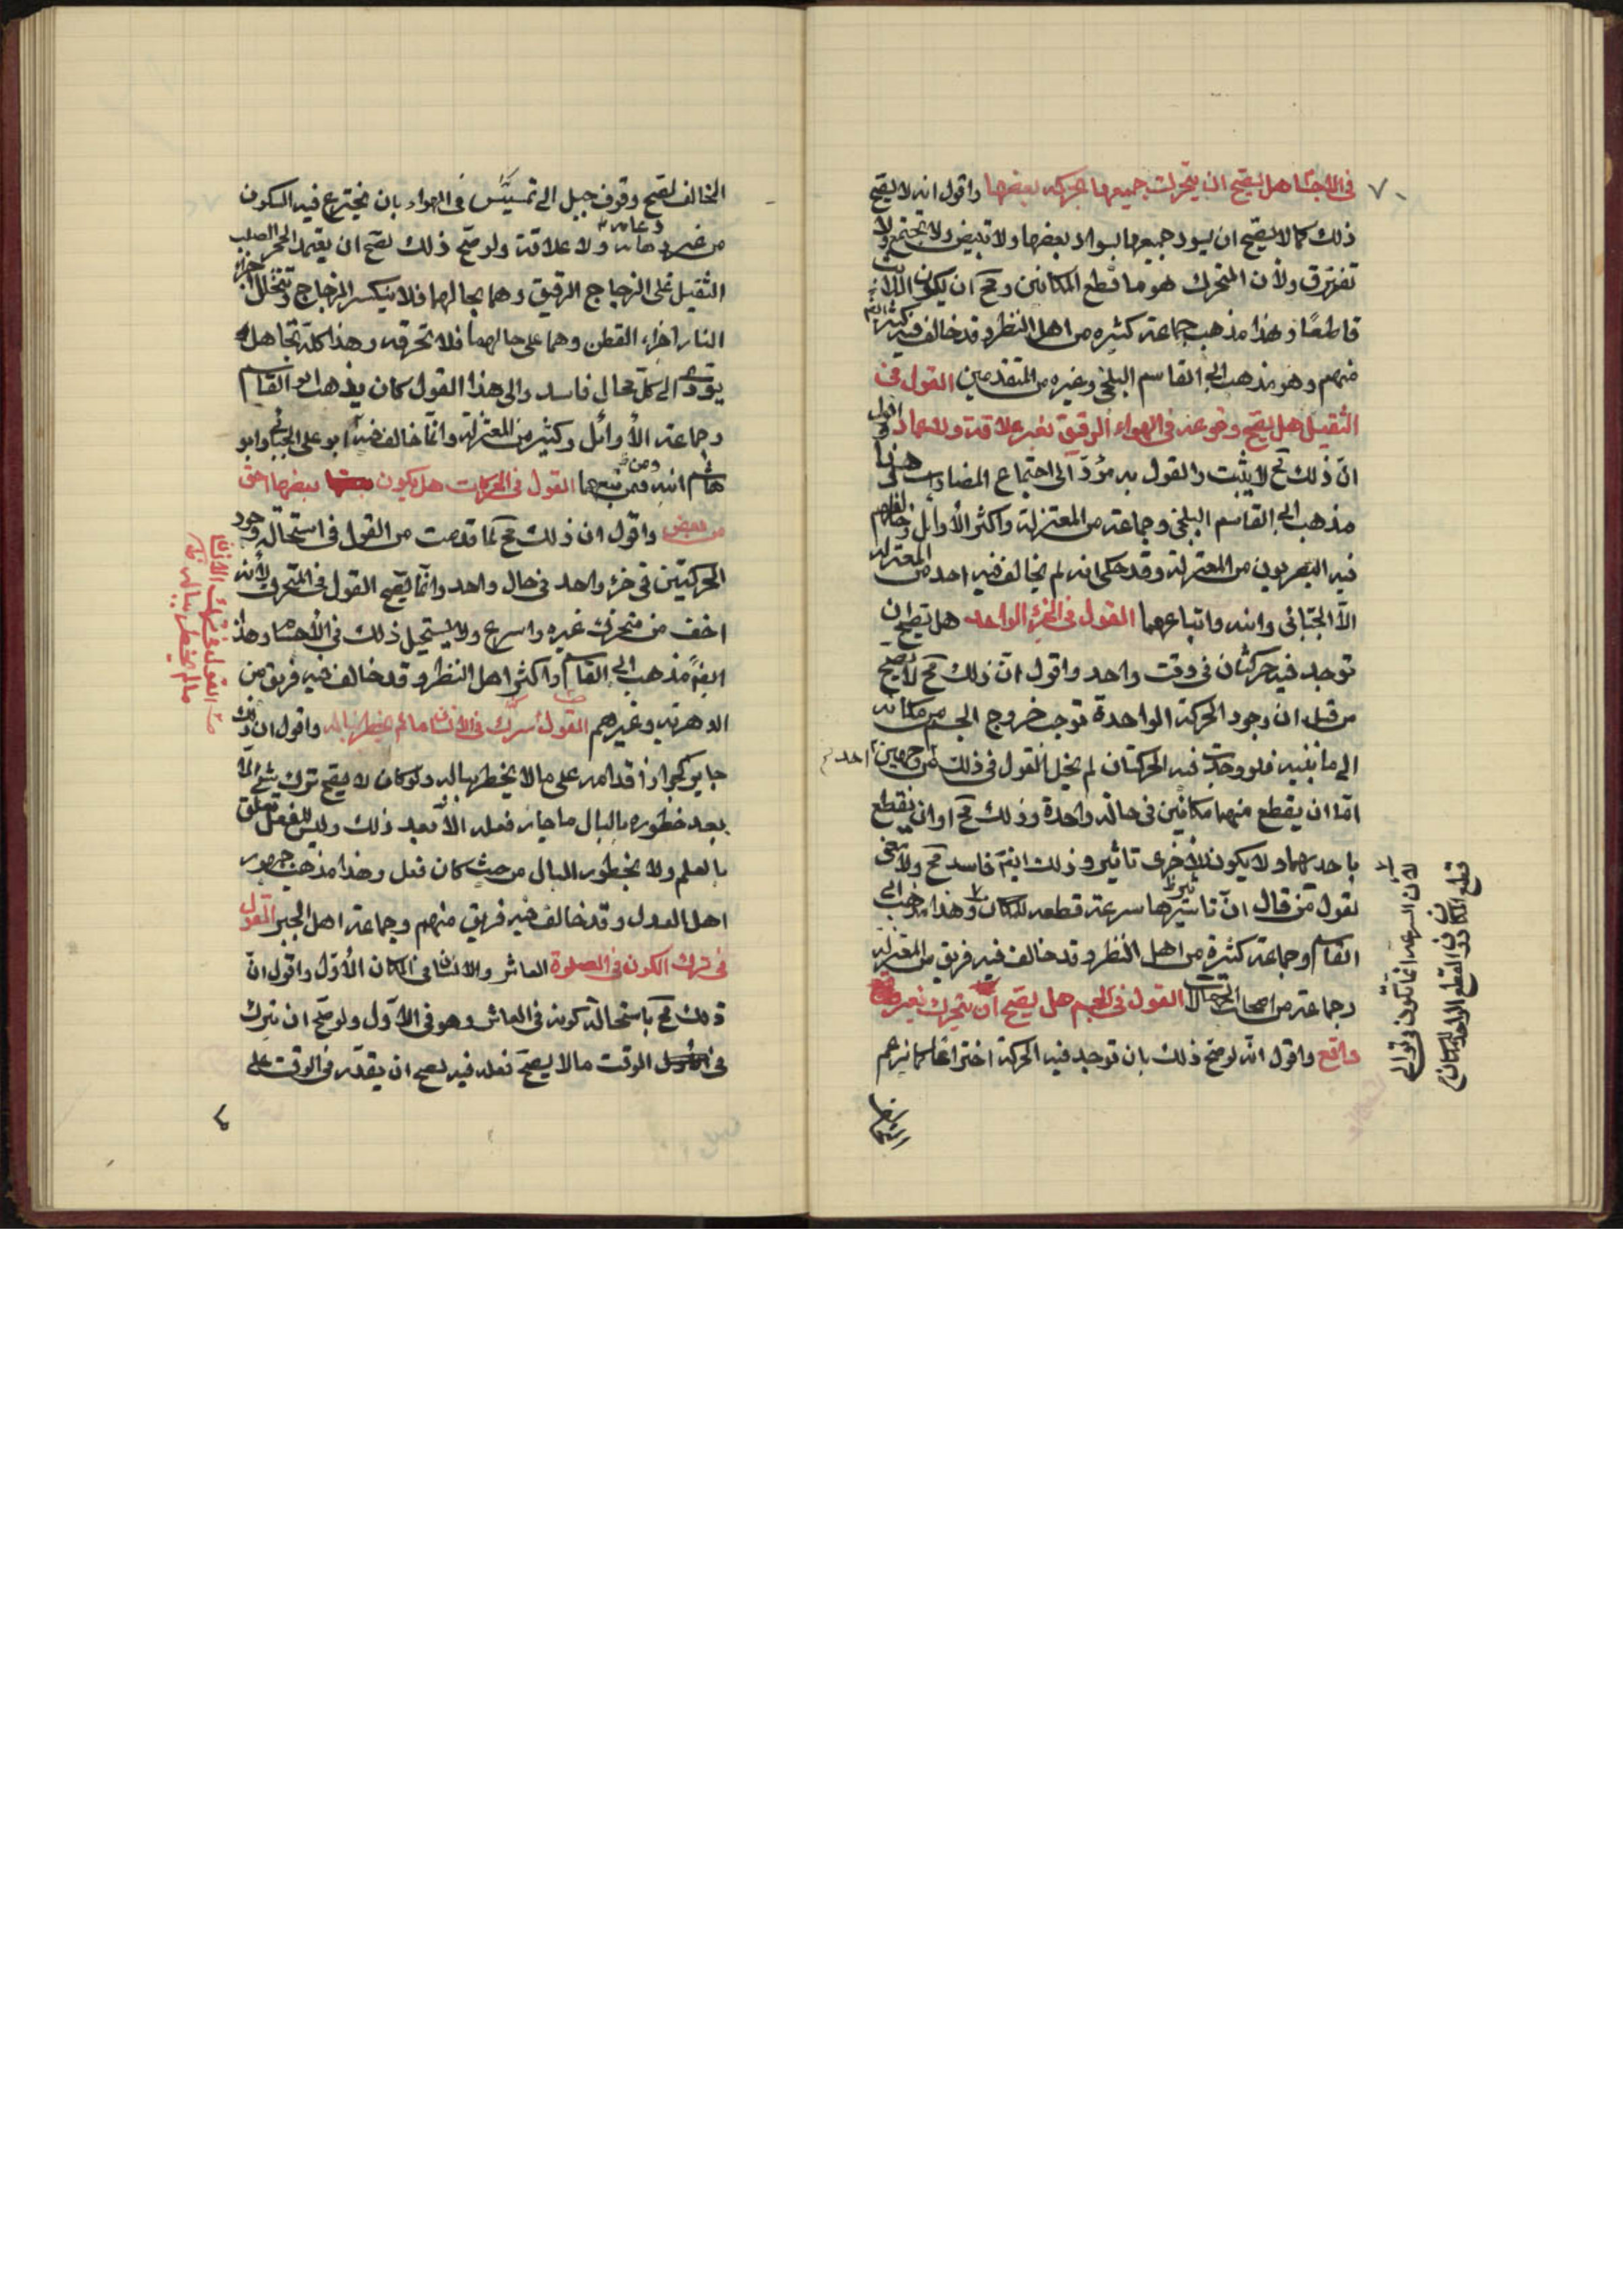 ٧٠
في الاجسام هل يصح ان يتحرك جميعها بحركة بعضها واقول انه لا يصح
ذلك كما لا يصح ان يسود جميعها بسواد بعضها ولا تبيض ولا تجتمع ولا
تفترق ولأن المتحرك هو ما قطع المكانين ومح ان يكون اللابث
قاطعًا وهذا مذهب جماعة كثيرة من اهل النظر وقد خالف فيه كثير
منهم وهو مذهب ابي القاسم البلخي وغيره من المتقدمين القول في
الثقيل هل يصح وقوعه في الهواء الرقيق بغير علاقة ولا عماد واقول
ان ذلك مح لا يثبت والقول به مؤد الى اجتماع المضادات وهذا
مذهب ابي القاسم البلخي وجماعة من المعتزلة واكثر الأوائل وخالفهم
فيه البصريون من المعتزلة وقد حكى انه لم يخالف فيه احد من المعتزلة
الا الجبائي وابنه واتباعهما القول في الجزء الواحد هل يصح ان
توجد فيه حركتان في وقت واحد واقول ان ذلك مح لا يصح
من قبل ان وجود الحركة الواحدة توجب خروج الجسم من مكانه
الى ما يليه فلو وجدت فيه الحركتان لم يخل القول في ذلك من
اما ان يقطع منهما مكانين في حالة واحدة وذلك مح او ان يقطع
باحدهما ولا يكون للاخرى تاثير وذلك ايضًا فاسد مح ولا معنى
لقول من قال ان تاثيرها سرعة قطعه للمكان وهذا مذهب ابي
القاسم وجماعة كثيرة من اهل النظر وقد خالف فيه فريق من المعتزلة
وجماعة من اصحاب الجهالات القول في الجسم هل يصح ان يتحرك بغير
دافع واقول انه لو صح ذلك بان توجد فيه الحركة اختراعا كما يزعم
لأن السرعة انما تكون في توالي
قطع المكان دون القطع الواحد للمكان
المخالف لصح وقوف جبل ابي قبيس في الهواء بان يخترع فيه السكون
من غير دعامة ولا علاقة ولو صح ذلك لصح ان يعتمد الحجر الصلب
الثقيل على الزجاج الرقيق وهما بحالهما فلا ينكسر الزجاج وتتخلل
النار اجزاء القطن وهما على حالهما فلا تحرقه وهذا كله تجاهل
يؤدي الى كل محال فاسد والى هذا القول كان يذهب ابو القاسم
وجماعة الأوائل وكثير من المعتزلة وانما خالف فيه ابو علي الجبائي وابو
هاشم ابنه ومن تبعهما القول في الحركات هل يكون بعضها اخف
من بعض واقول ان ذلك مح لما قدمت من القول في استحالة وجود
الحركتين في جزء واحد في حال واحد وانما يصح القول في المتحرك بأنه
اخف من متحرك غيره واسرع ولا يستحيل ذلك في الأجسام وهذا
ايضًا مذهب ابي القاسم واكثر اهل النظر وقد خالف فيه فريق من
الدهرية وغيرهم القول في ترك الانسان ما لم يخطر بباله واقول ان ذلك
جايز كجواز اقدامه على ما لا يخطر بباله ولو كان لا يصح ترك شيء الا
بعد خطوره بالبال ما جاز فعله الا بعد ذلك وليس للفعل تعلق
بالعلم ولا بخطور البال من حيث كان فعل وهذا مذهب جمهور
اهل العدل وقد خالف فيه فريق منهم وجماعة اهل الجبر القول
في ترك الكون في المكان العاشر والانسان في المكان الأول واقول ان
ذلك مح باستحالة كونه في العاشر وهو في الأول ولو صح ان يترك
في الوقت ما لا يصح فعله فيه لصح ان يقدر في الوقت على
القول في ترك الانسان
ما لم يخطر بباله